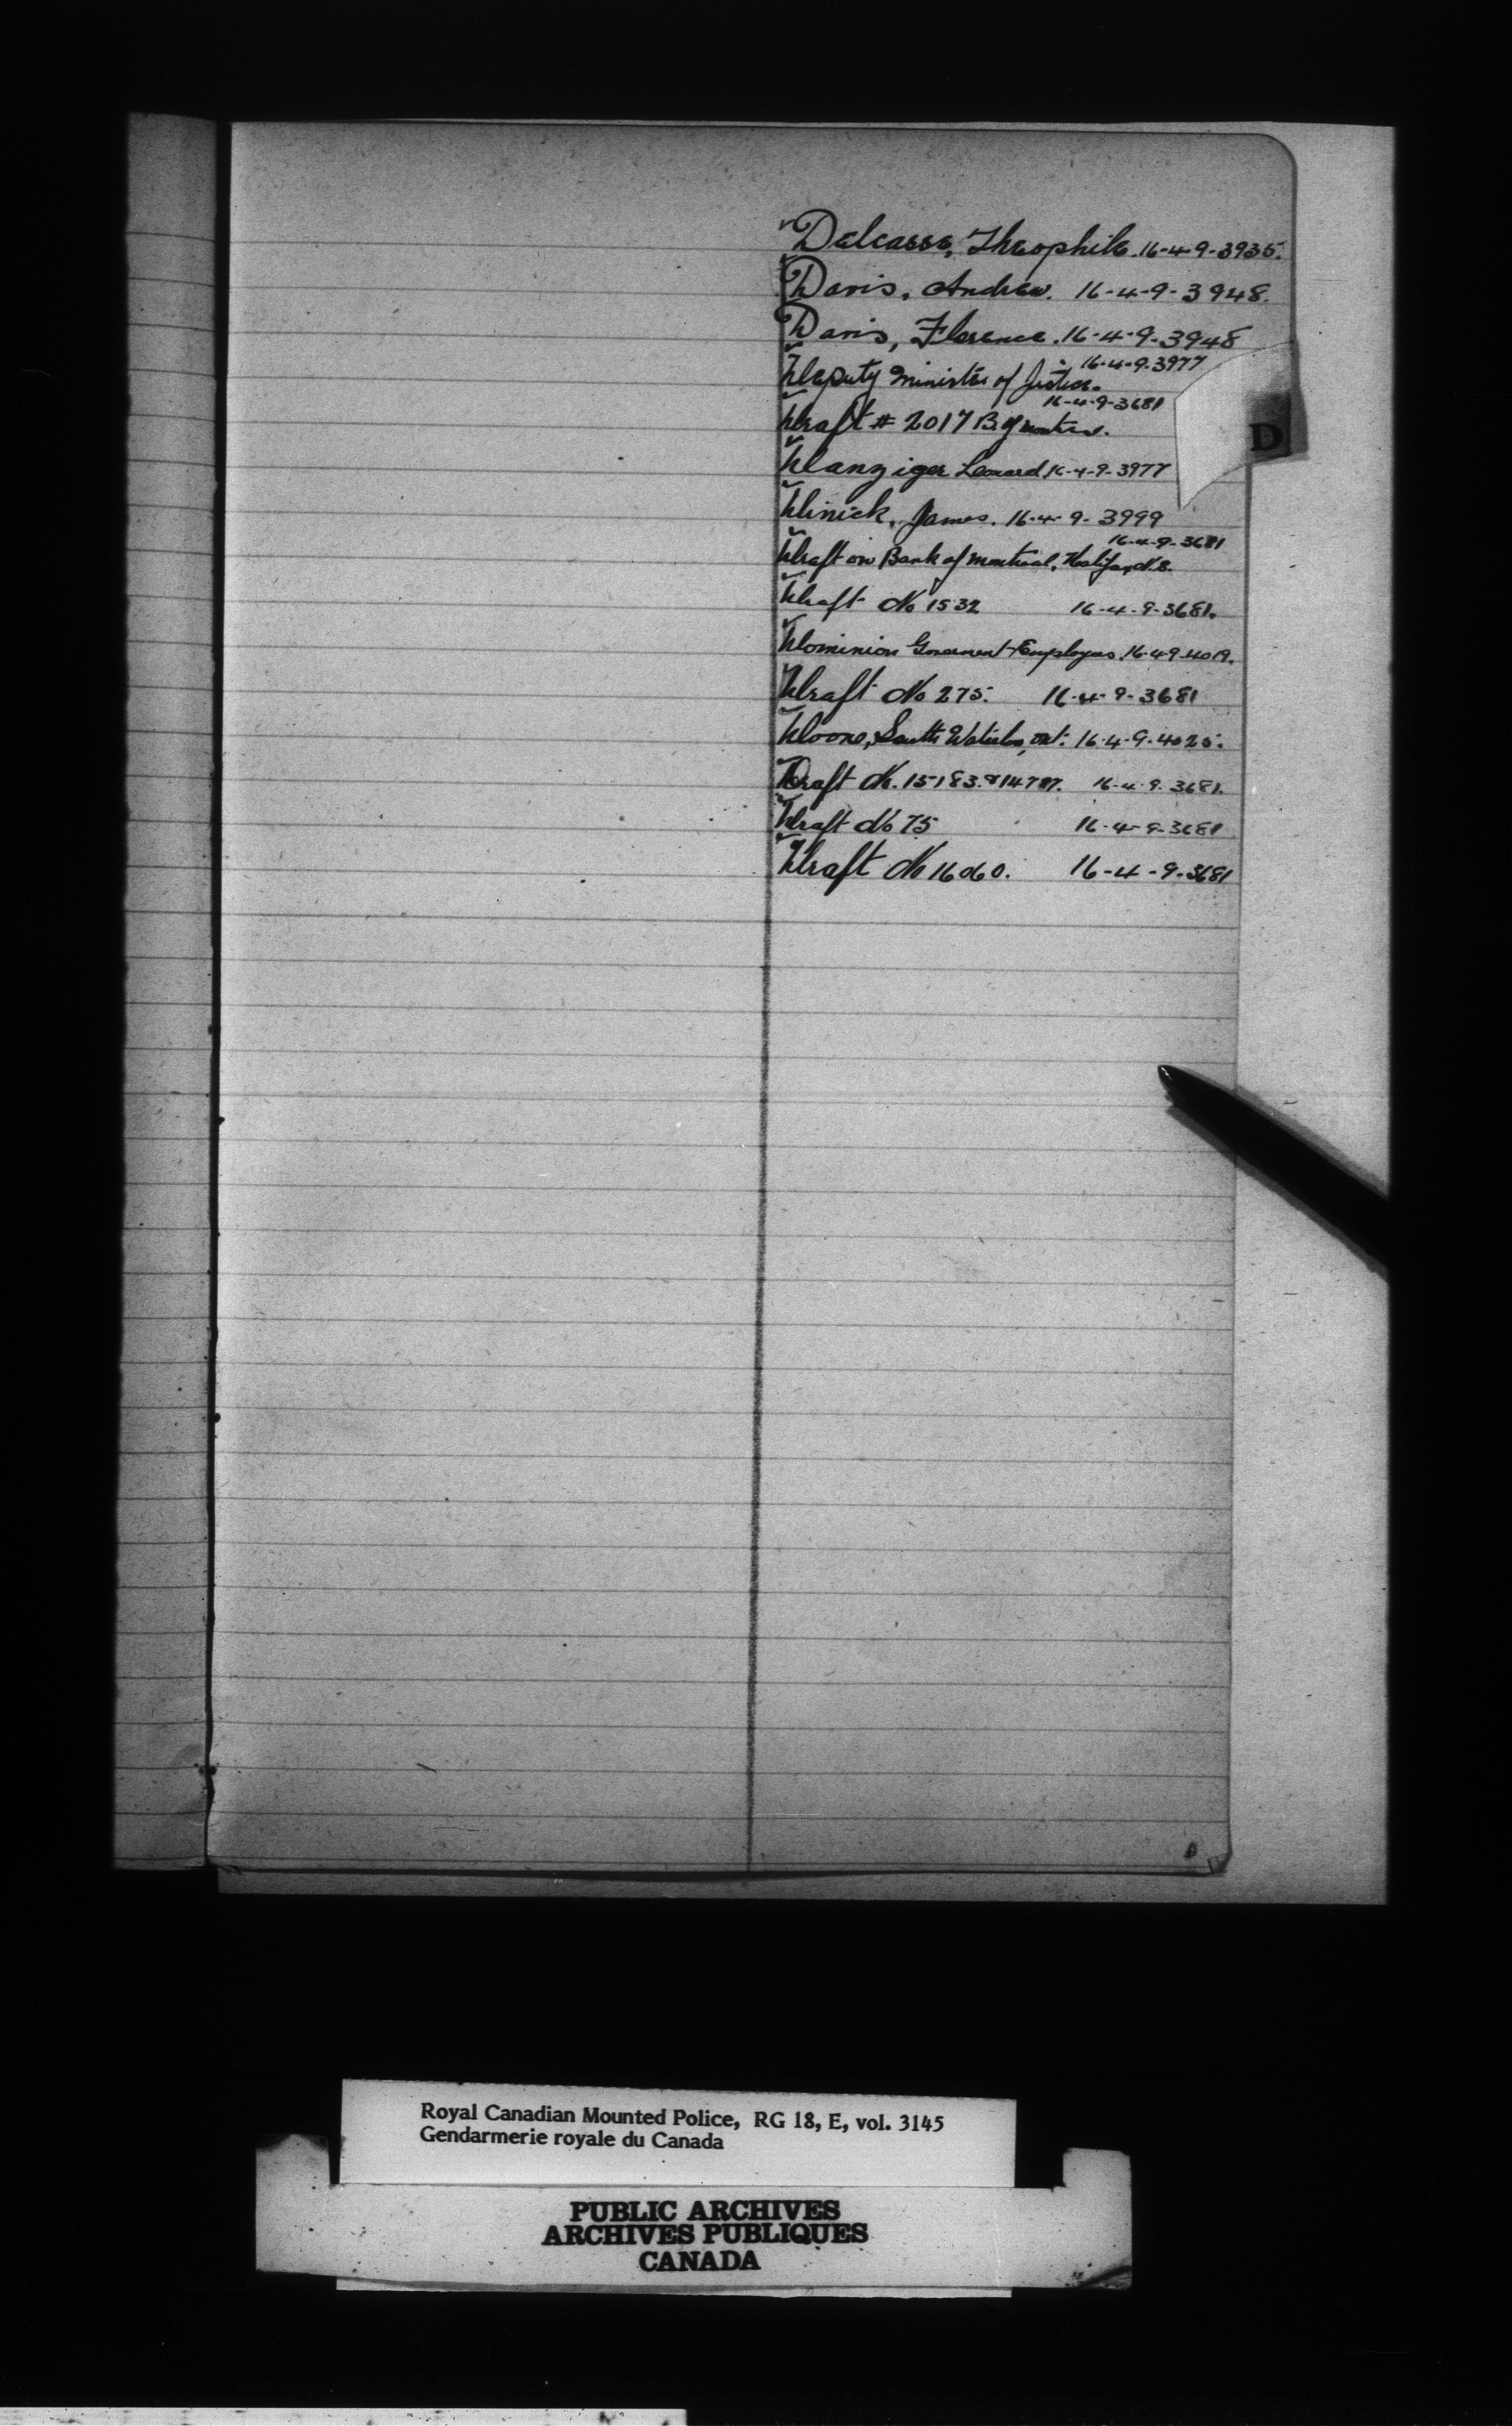 Delcasse, Theophile. 16-4-9-3935.
Davis, Andrew. 16-4-9-3948.
Davis, Florence. 16-4-9-3948
Deputy Minister of Justice. 16-4-9-3977
Draft # 2017 B. of Montreal. 16-4-9-3681
D
Danziger Leonard 16-4-9-3977
Dinick, James. 16-4-9-3999
Draft on Bank of Montreal, Halifax, N.S. 16-4-9-3681
Draft No 1532 16-4-9-3681.
Dominion Government Employees. 16-4-9-4019.
Draft No 275. 16-4-9-3681
Doone, South Waterloo, Ont. 16-4-9-4025.
Draft No. 15183 & 14787. 16-4-9-3681.
Draft No 75 16-4-9-3681
Draft No 16060. 16-4-9-3681
Royal Canadian Mounted Police, RG 18, E, vol. 3145
Gendarmerie royale du Canada
PUBLIC ARCHIVES
ARCHIVES PUBLIQUES
CANADA